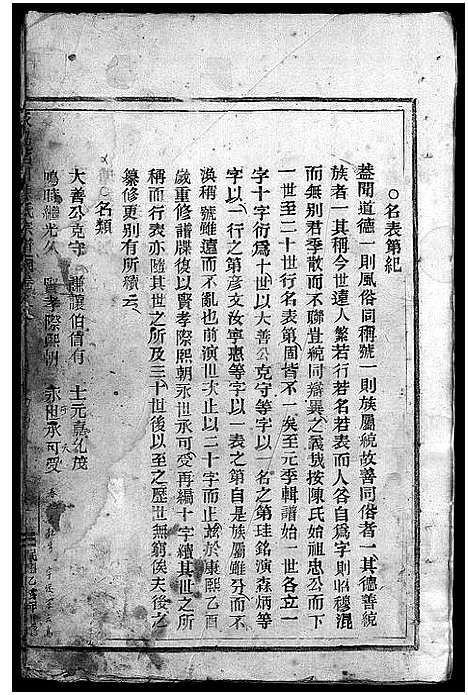 ○名表第紀
蓋聞道德一則風俗同稱號一則族屬統故善同俗者一其德善統
族者一其稱今世達人繁若行若名若表而人各自爲字則昭穆混
而無別君季散而不聯豈統同辯異之義哉按陳氏始祖忠公而下
一世至二十世行名表第固皆不一矣至元季輯譜始一世各立一
字十字衍爲十世以大善公克守等字以一名之第珪銘演森炳等
字以一行之第彦文汝寧惠等字以一表之第自是族屬雖分而不
渙稱號雖遠而不亂也前演世次止以二十字而止茲於康熙乙酉
歲重修譜牒復以賢孝際熙朝永世承可受再編十字續其世之所
稱而行表亦隨其世之所及三十世後以至之歷世無窮俟夫後之
纂修更別有所續云
○名類
大善公克守 謙讓伯信有 士元嘉兆茂
鳴時繼光久 賢孝際熙朝 永世承可受